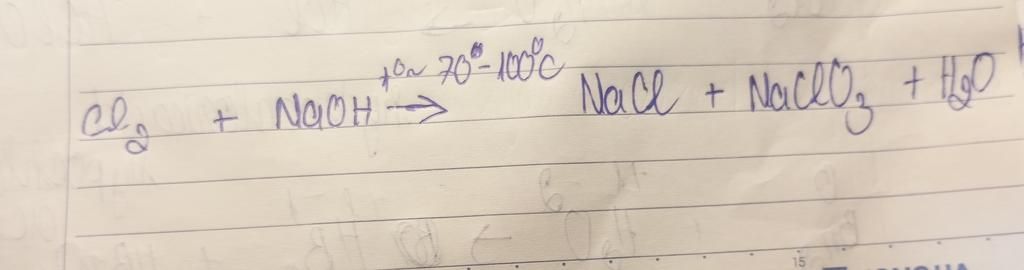 Cl₂ + NaOH → t° ~ 70° - 100°C NaCl + NaClO₃ + H₂O
15